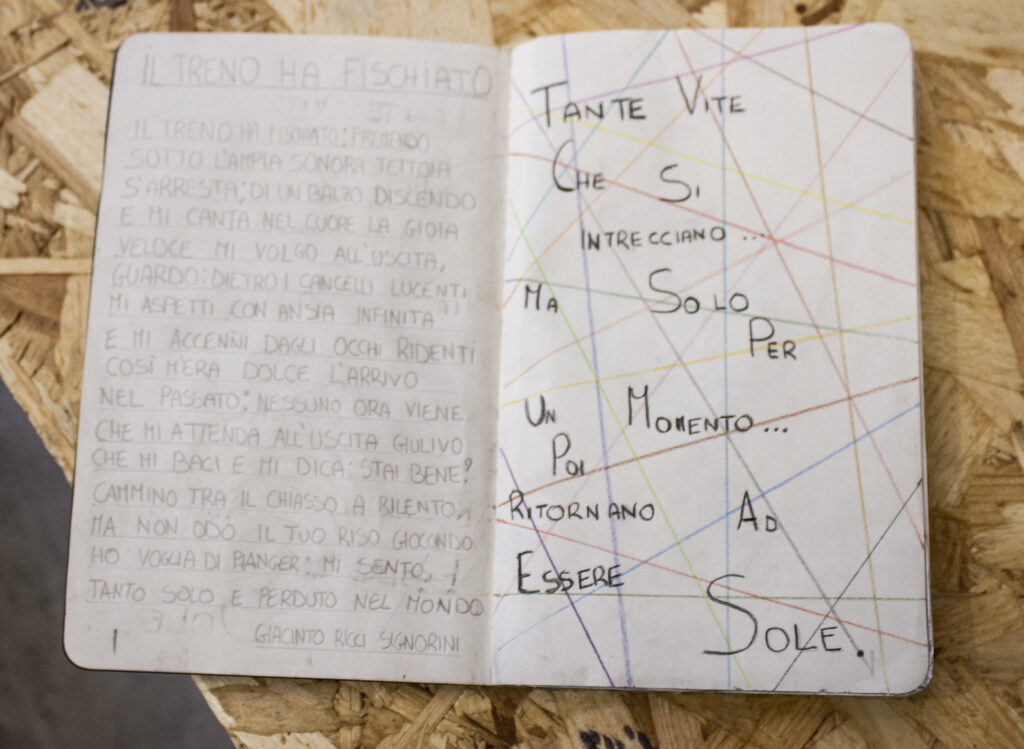 IL TRENO HA FISCHIATO
IL TRENO HA FISCHIATO: FREMENDO
SOTTO L'AMPIA SONORA TETTOIA
S'ARRESTA; DI UN BALZO DISCENDO
E MI CANTA NEL CUORE LA GIOIA
VELOCE MI VOLGO ALL'USCITA,
GUARDO: DIETRO I CANCELLI LUCENTI
MI ASPETTI CON ANSIA INFINITA
E MI ACCENNI DAGLI OCCHI RIDENTI
COSÌ M'ERA DOLCE L'ARRIVO
NEL PASSATO: NESSUNO ORA VIENE
CHE MI ATTENDA ALL'USCITA GIULIVO
CHE MI BACI E MI DICA: STAI BENE?
CAMMINO TRA IL CHIASSO A RILENTO,
MA NON ODO IL TUO RISO GIOCONDO
HO VOGLIA DI PIANGER: MI SENTO,
TANTO SOLO E PERDUTO NEL MONDO
GIACINTO RICCI SIGNORINI
1
TANTE VITE
CHE SI
INTRECCIANO ...
MA SOLO
PER
UN MOMENTO...
POI
RITORNANO AD
ESSERE
SOLE.